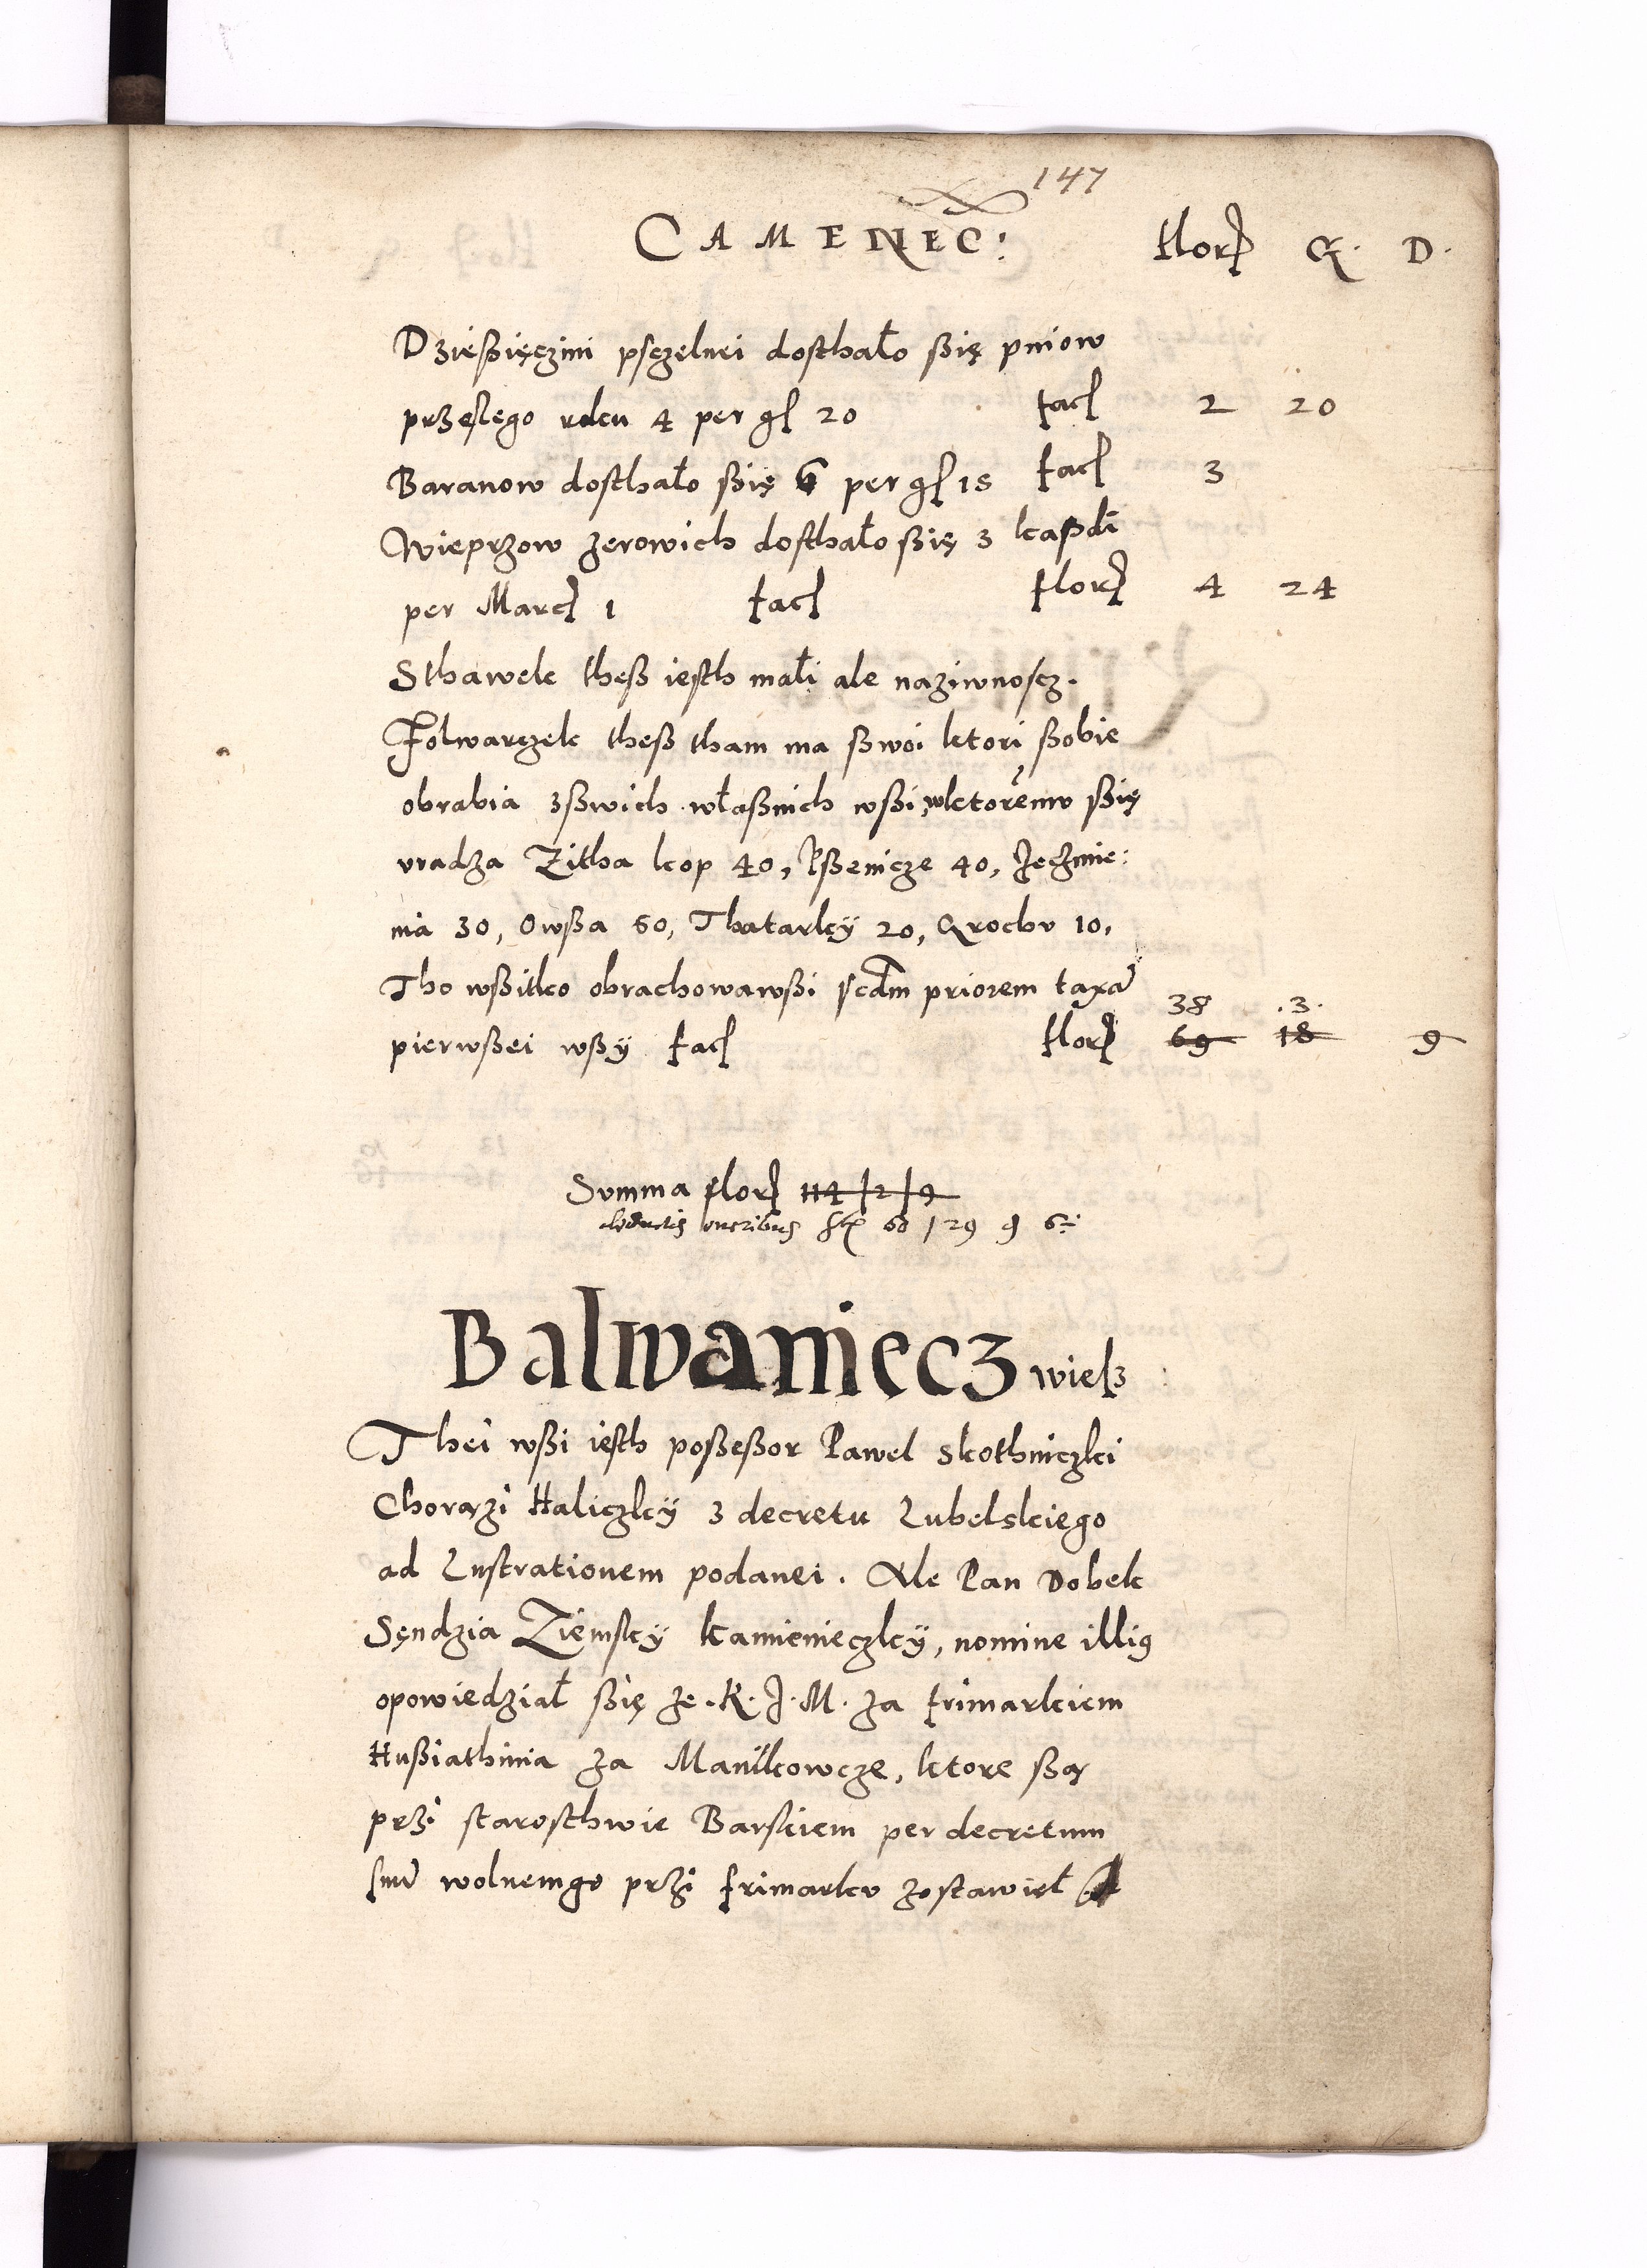 147
CAMENEC: flor G. D.
Dzießięczini psczelnei dosthało ßię pniow
przeslego roku 4 per gſ 20 facſ 2 20
Baranow dosthało ßię 6 per gſ 15 facſ 3
Wieprzow zerowich dosthało ßię 3 kaßdi
per Marc 1 facſ flor 4 24
Sthawek theß iesth małi ale naziwnoscz.
Folwarczek theß tham ma ßwoi ktori ßobie
obrabia zßwich własznich wßi, wktoremv ßię
vradza Zitha kop 40, Pßenicze 40, Jeczmie:
nia 30, Owßa 50, Thatarky 20, Grochv 10,
Tho wßitko obrachowawßi scdm priorem taxa
38 .3.
pierwßei wßy facſ flor 69 18 9
Svmma flor 114 | 2 | 9
deductis oneribus 60 / 29 9 6
Balwaniecz wiesz
Thei wßi iesth poßeßor Pawel Skothniczki
Chorązi Haliczky z decretu Lubelskiego
ad Lustrationem podanei. Ale Pan Dobek
Sęndzia Ziemsky Kamienieczky, nomine illi9
opowiedział ßię ze. K. J. M. za frimarkiem
Hußiathinia za Manikowcze, ktore ßą
przi starosthwie Barskiem per decretum
wolnemgo przi frimarkv zostawieł